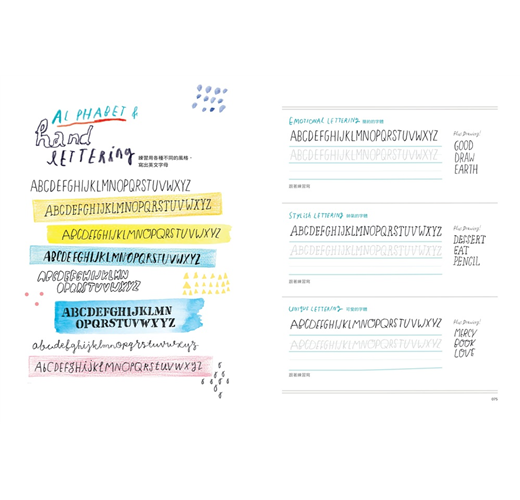 ALPHABET &
hand
LETTERING
練習用各種不同的風格，
寫出英文字母
ABCDEFGHIJKLMNOPQRSTUVWXYZ
ABCDEFGHIJKLMNOPQRSTUVWXYZ
ABCDEFGHIJKLMNOPQRSTUVWXYZ
ABCDEFGHIJKLMNOPQRSTUVWXYZ
ABCDEFGHIJKLMN
OPQRSTUVWXYZ
ABCDEFGHIJKLMN
OPQRSTUVWXYZ
abcdefghijklmnopqrstuvwxyz
ABCDEFGHIJKLMNOPQRSTUVWXYZ
EMOTIONAL LETTERING
ABCDEFGHIJKLMNOPQRSTUVWXYZ
ABCDEFGHIJKLMNOPQRSTUVWXYZ
跟著練習吧
GOOD
DRAW
EARTH
STYLISH LETTERING
ABCDEFGHIJKLMNOPQRSTUVWXYZ
ABCDEFGHIJKLMNOPQRSTUVWXYZ
跟著練習吧
DESSERT
EAT
PENCIL
UNIQUE LETTERING
ABCDEFGHIJKLMNOPQRSTUVWXYZ
ABCDEFGHIJKLMNOPQRSTUVWXYZ
跟著練習吧
MERCY
BOOK
LOVE